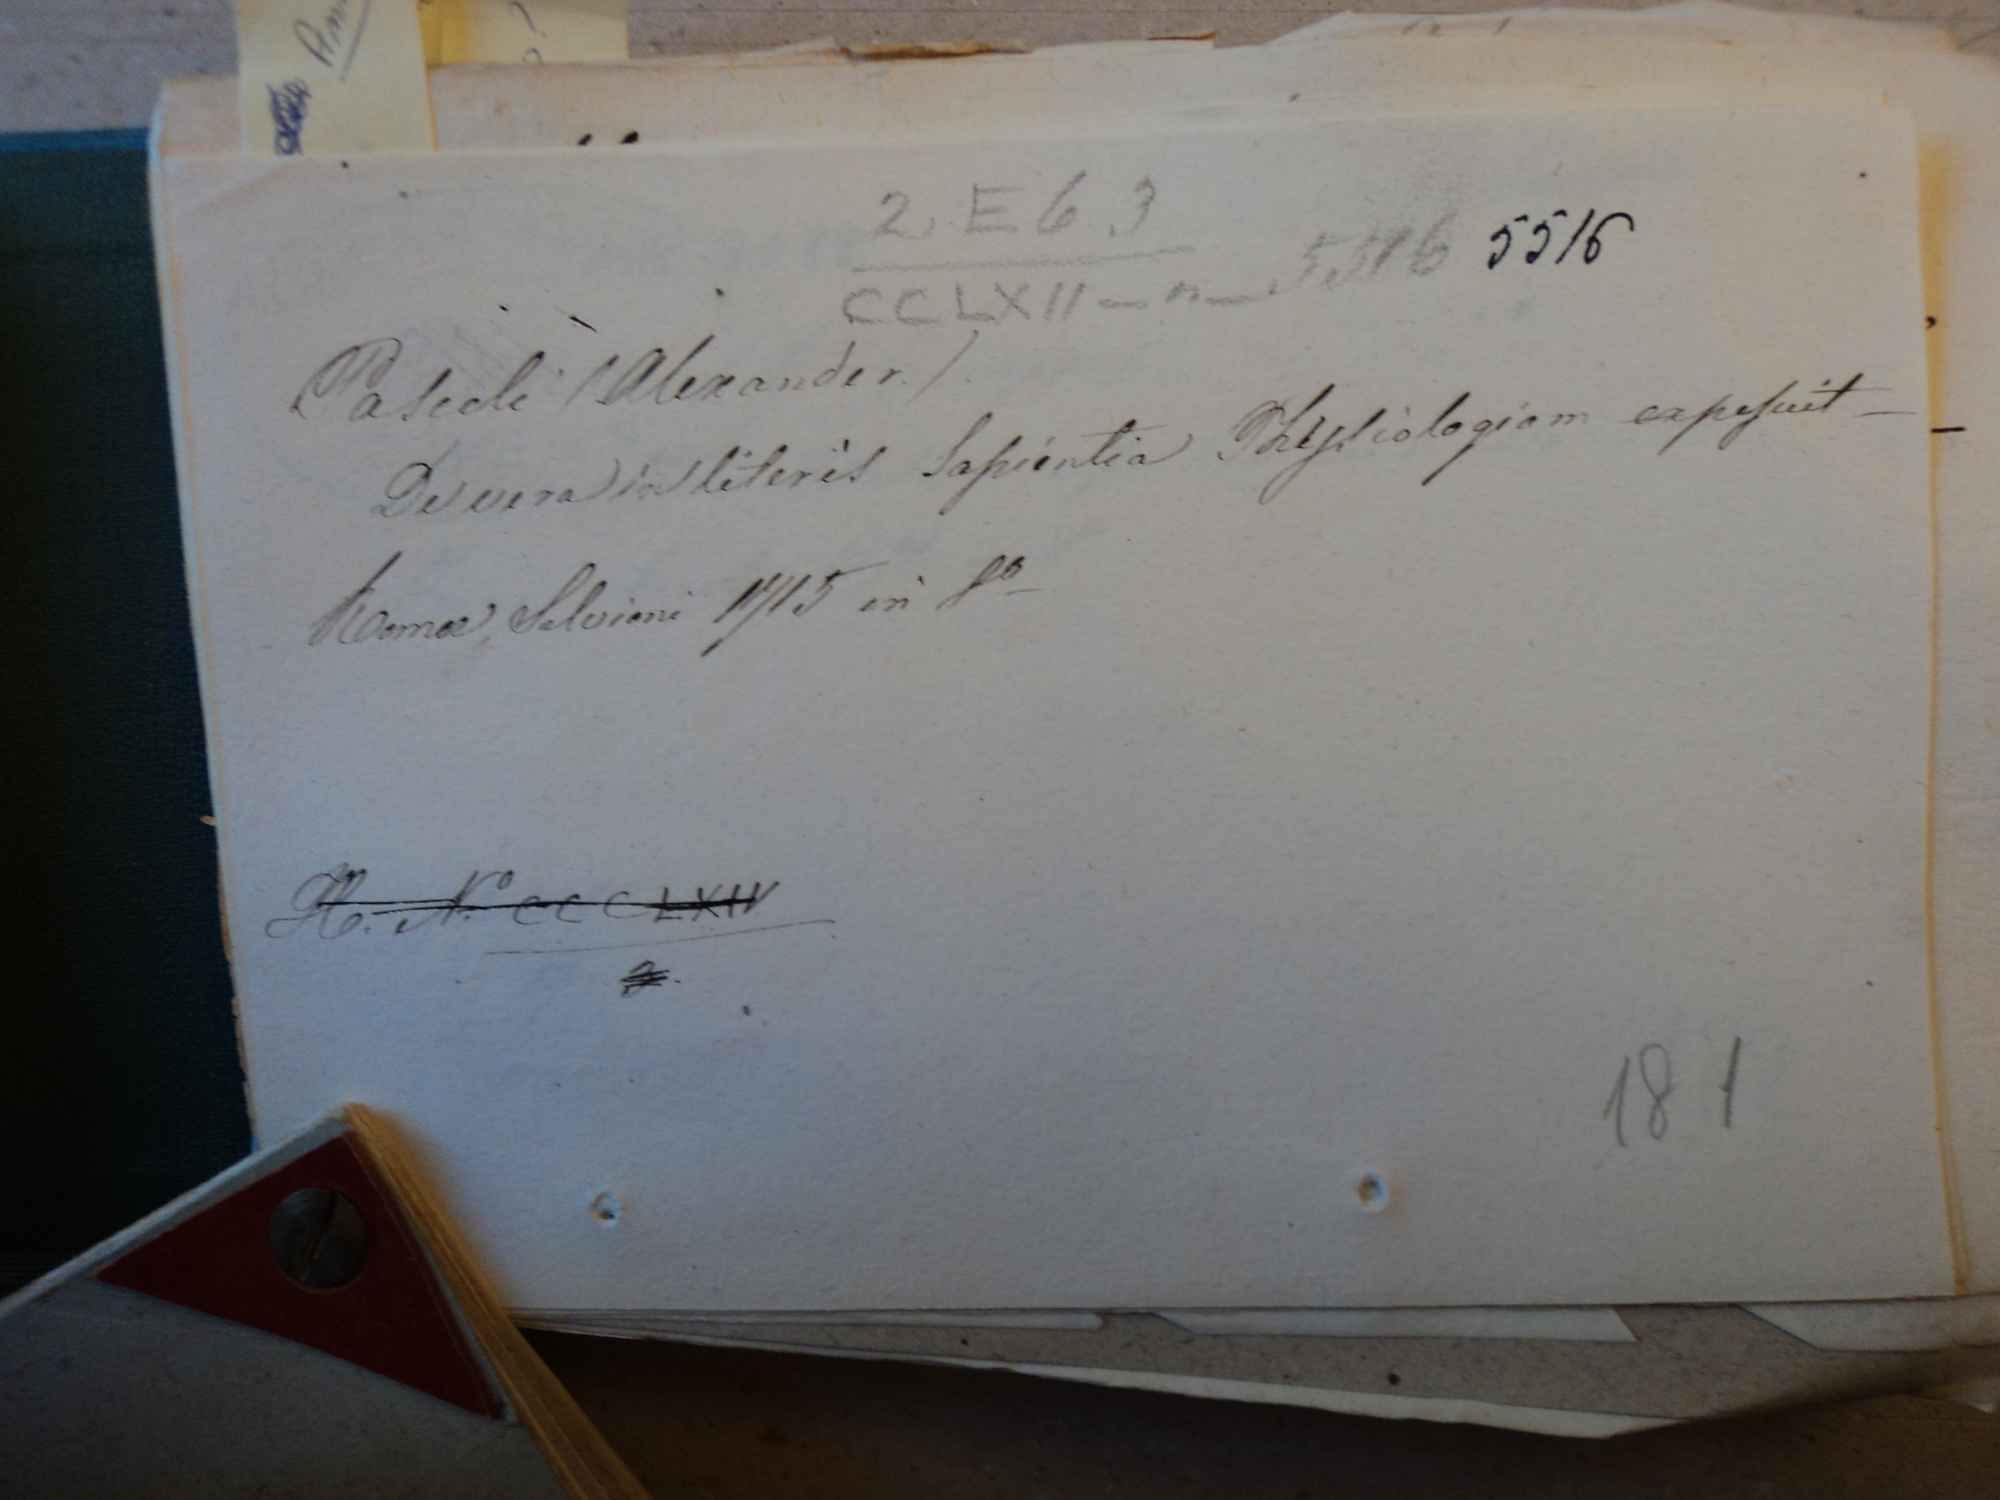 2. E 6 3
CCLXII — n — 5516 5516
Pascoli (Alexander.)
De vera in literis Sapientia Physiologiam exposuit —
Romae, Salvioni 1715 in 8º
H. Nº CCCLXIV
181